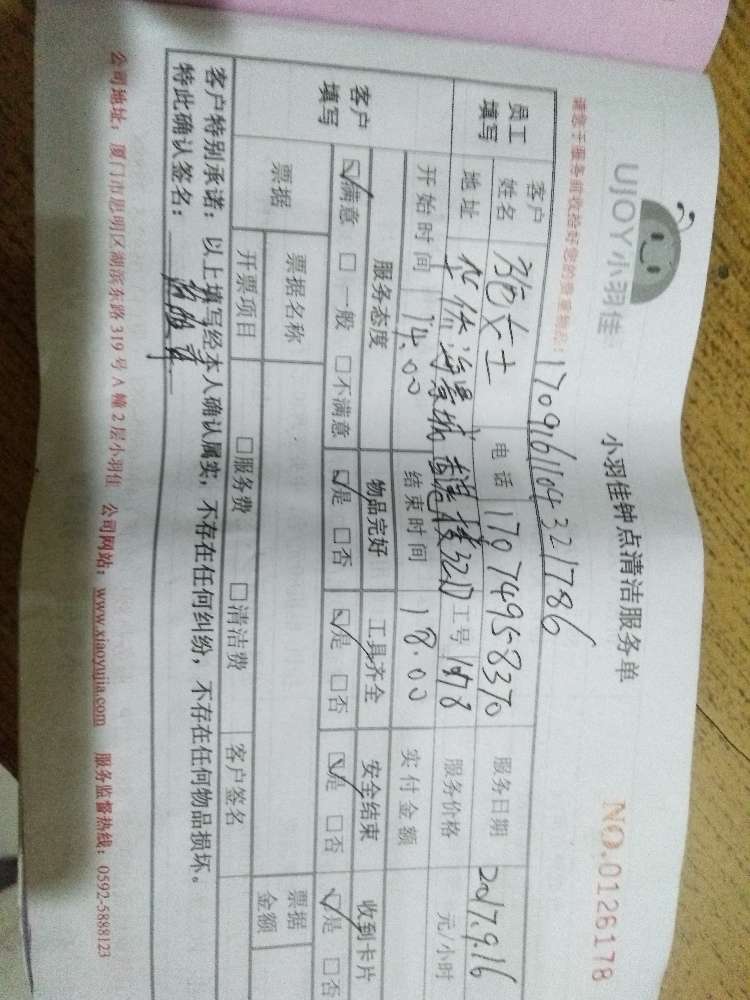 UJOY小羽佳
小羽佳钟点清洁服务单
NO.0126178
请您于服务前收拾好您的贵重物品!
1709161104321786
员工填写 客户姓名 女士 电话 17074958370 服务日期 2017.9.16
地址 海景城 工号 1678 服务价格 元/小时
开始时间 14.00 结束时间 18.00 实付金额
客户填写 服务态度 物品完好 工具齐全 安全结束 收到卡片
☑满意 □一般 □不满意 ☑是 □否 ☑是 □否 ☑是 □否 ☑是 □否
票据 票据名称 票据金额
开票项目 □服务费 □清洁费 客户签名
客户特别承诺:以上填写经本人确认属实,不存在任何纠纷,不存在任何物品损坏。
特此确认签名:
公司地址:厦门市思明区湖滨东路319号A幢2层小羽佳 公司网站:www.xiaoyujia.com 服务监督热线:0592-5888123